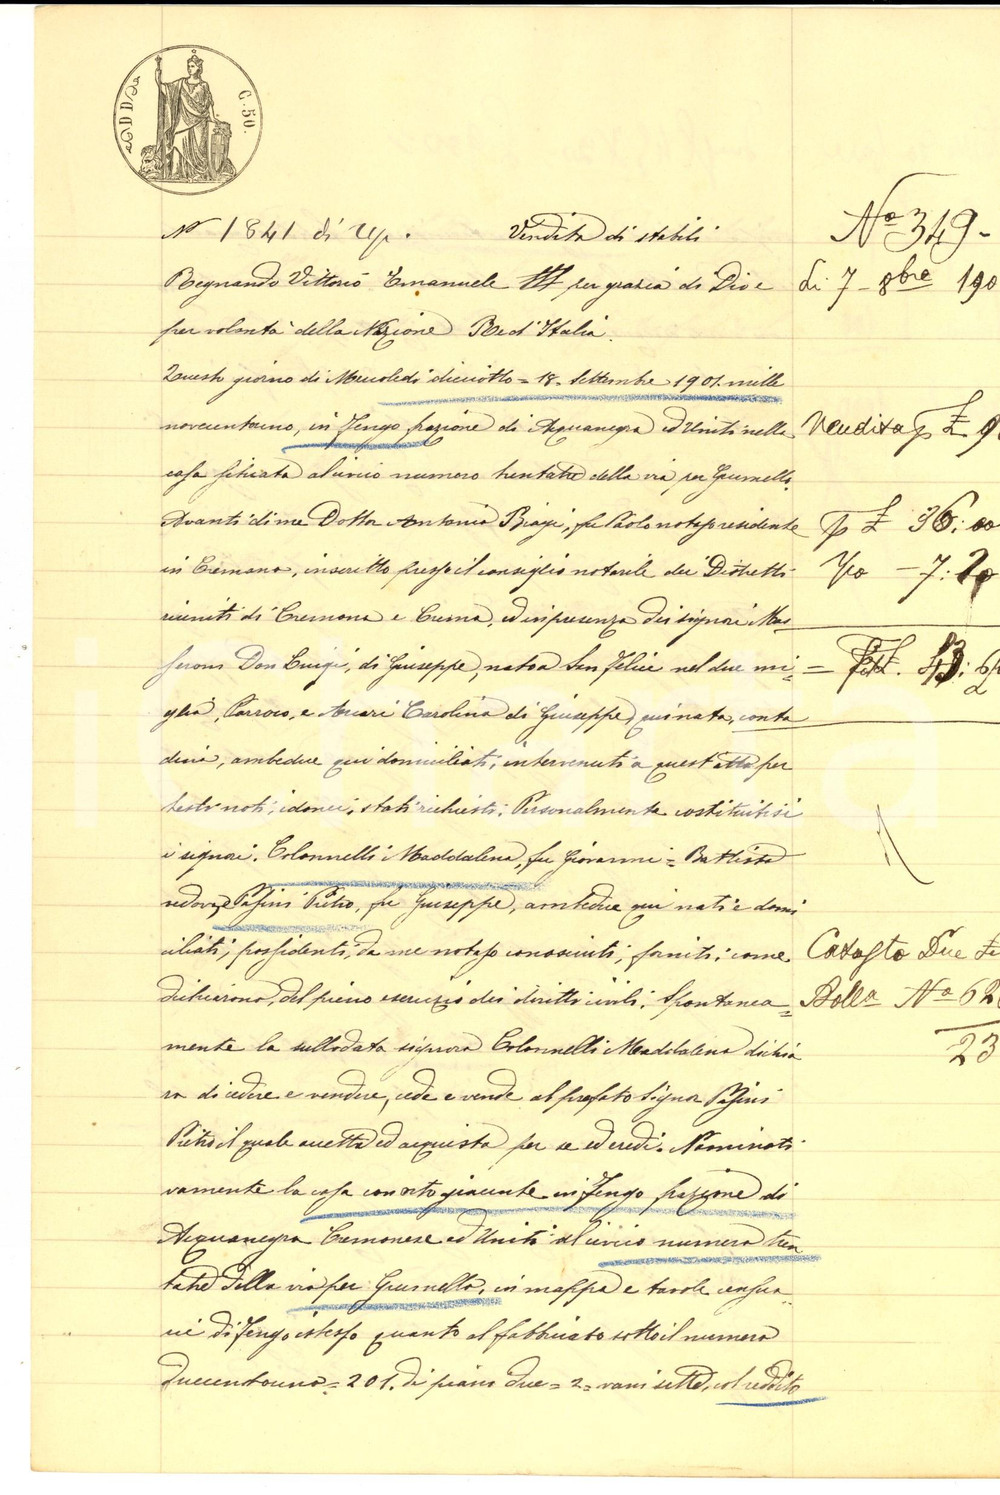 C. 50.
No 1841 di Rep. Vendita di stabili
No 349-
Regnando Vittorio Emanuele III per grazia di Dio e
Li 7 - 8bre 190
per volontà della Nazione Re d'Italia.
Questo giorno di Mercoledì diciotto = 18. Settembre 1901. mille
novecentouno, in Fengo frazione di Acquanegra ed Uniti nella
Vendita p £ 9
casa situata al civico numero trentatre della via per Grumello.
Avanti di me Dottor Antonio Biagi, fu Paolo notajo residente
p £ 36:00
in Cremona, inscritto presso il consiglio notarile dei Distretti
- 7:20
riuniti di Cremona e Crema, ed in presenza dei signori Mas=
seroni Don Luigi, di Giuseppe, nato a San Felice nel due mi=
= £. 43:
glia, Parroco, e Anari Carolina di Giuseppe, qui nata, conta
dina, ambedue qui domiciliati, intervenuti a quest'atto per
testi noti, idonei, stati richiesti; Personalmente costituitisi
i signori. Colonnelli Maddalena, fu Giovanni = Battista
vedova, e Pasini Pietro, fu Giuseppe, ambedue qui nati e domi
ciliati, possidenti, da me notajo conosciuti, forniti, come
Catasto Due
dichiarono, del pieno esercizio dei diritti civili. Spontanea=
Bolla No 62
mente la sullodata signora Colonnelli Maddalena dichia
23
ra di cedere e vendere, cede e vende al prefato Signor Pasini
Pietro il quale accetta ed acquista per se ed eredi. Nominati
vamente la casa con orto giacente in Fengo frazione di
Acquanegra Cremonese ed Uniti al civico numero tren
tatre della via per Grumello, in mappa e tavole censua
rie di Fengo istesso quanto al fabbricato sotto il numero
duecentouno = 201. di piani due = 2 = vani sette, col reddito